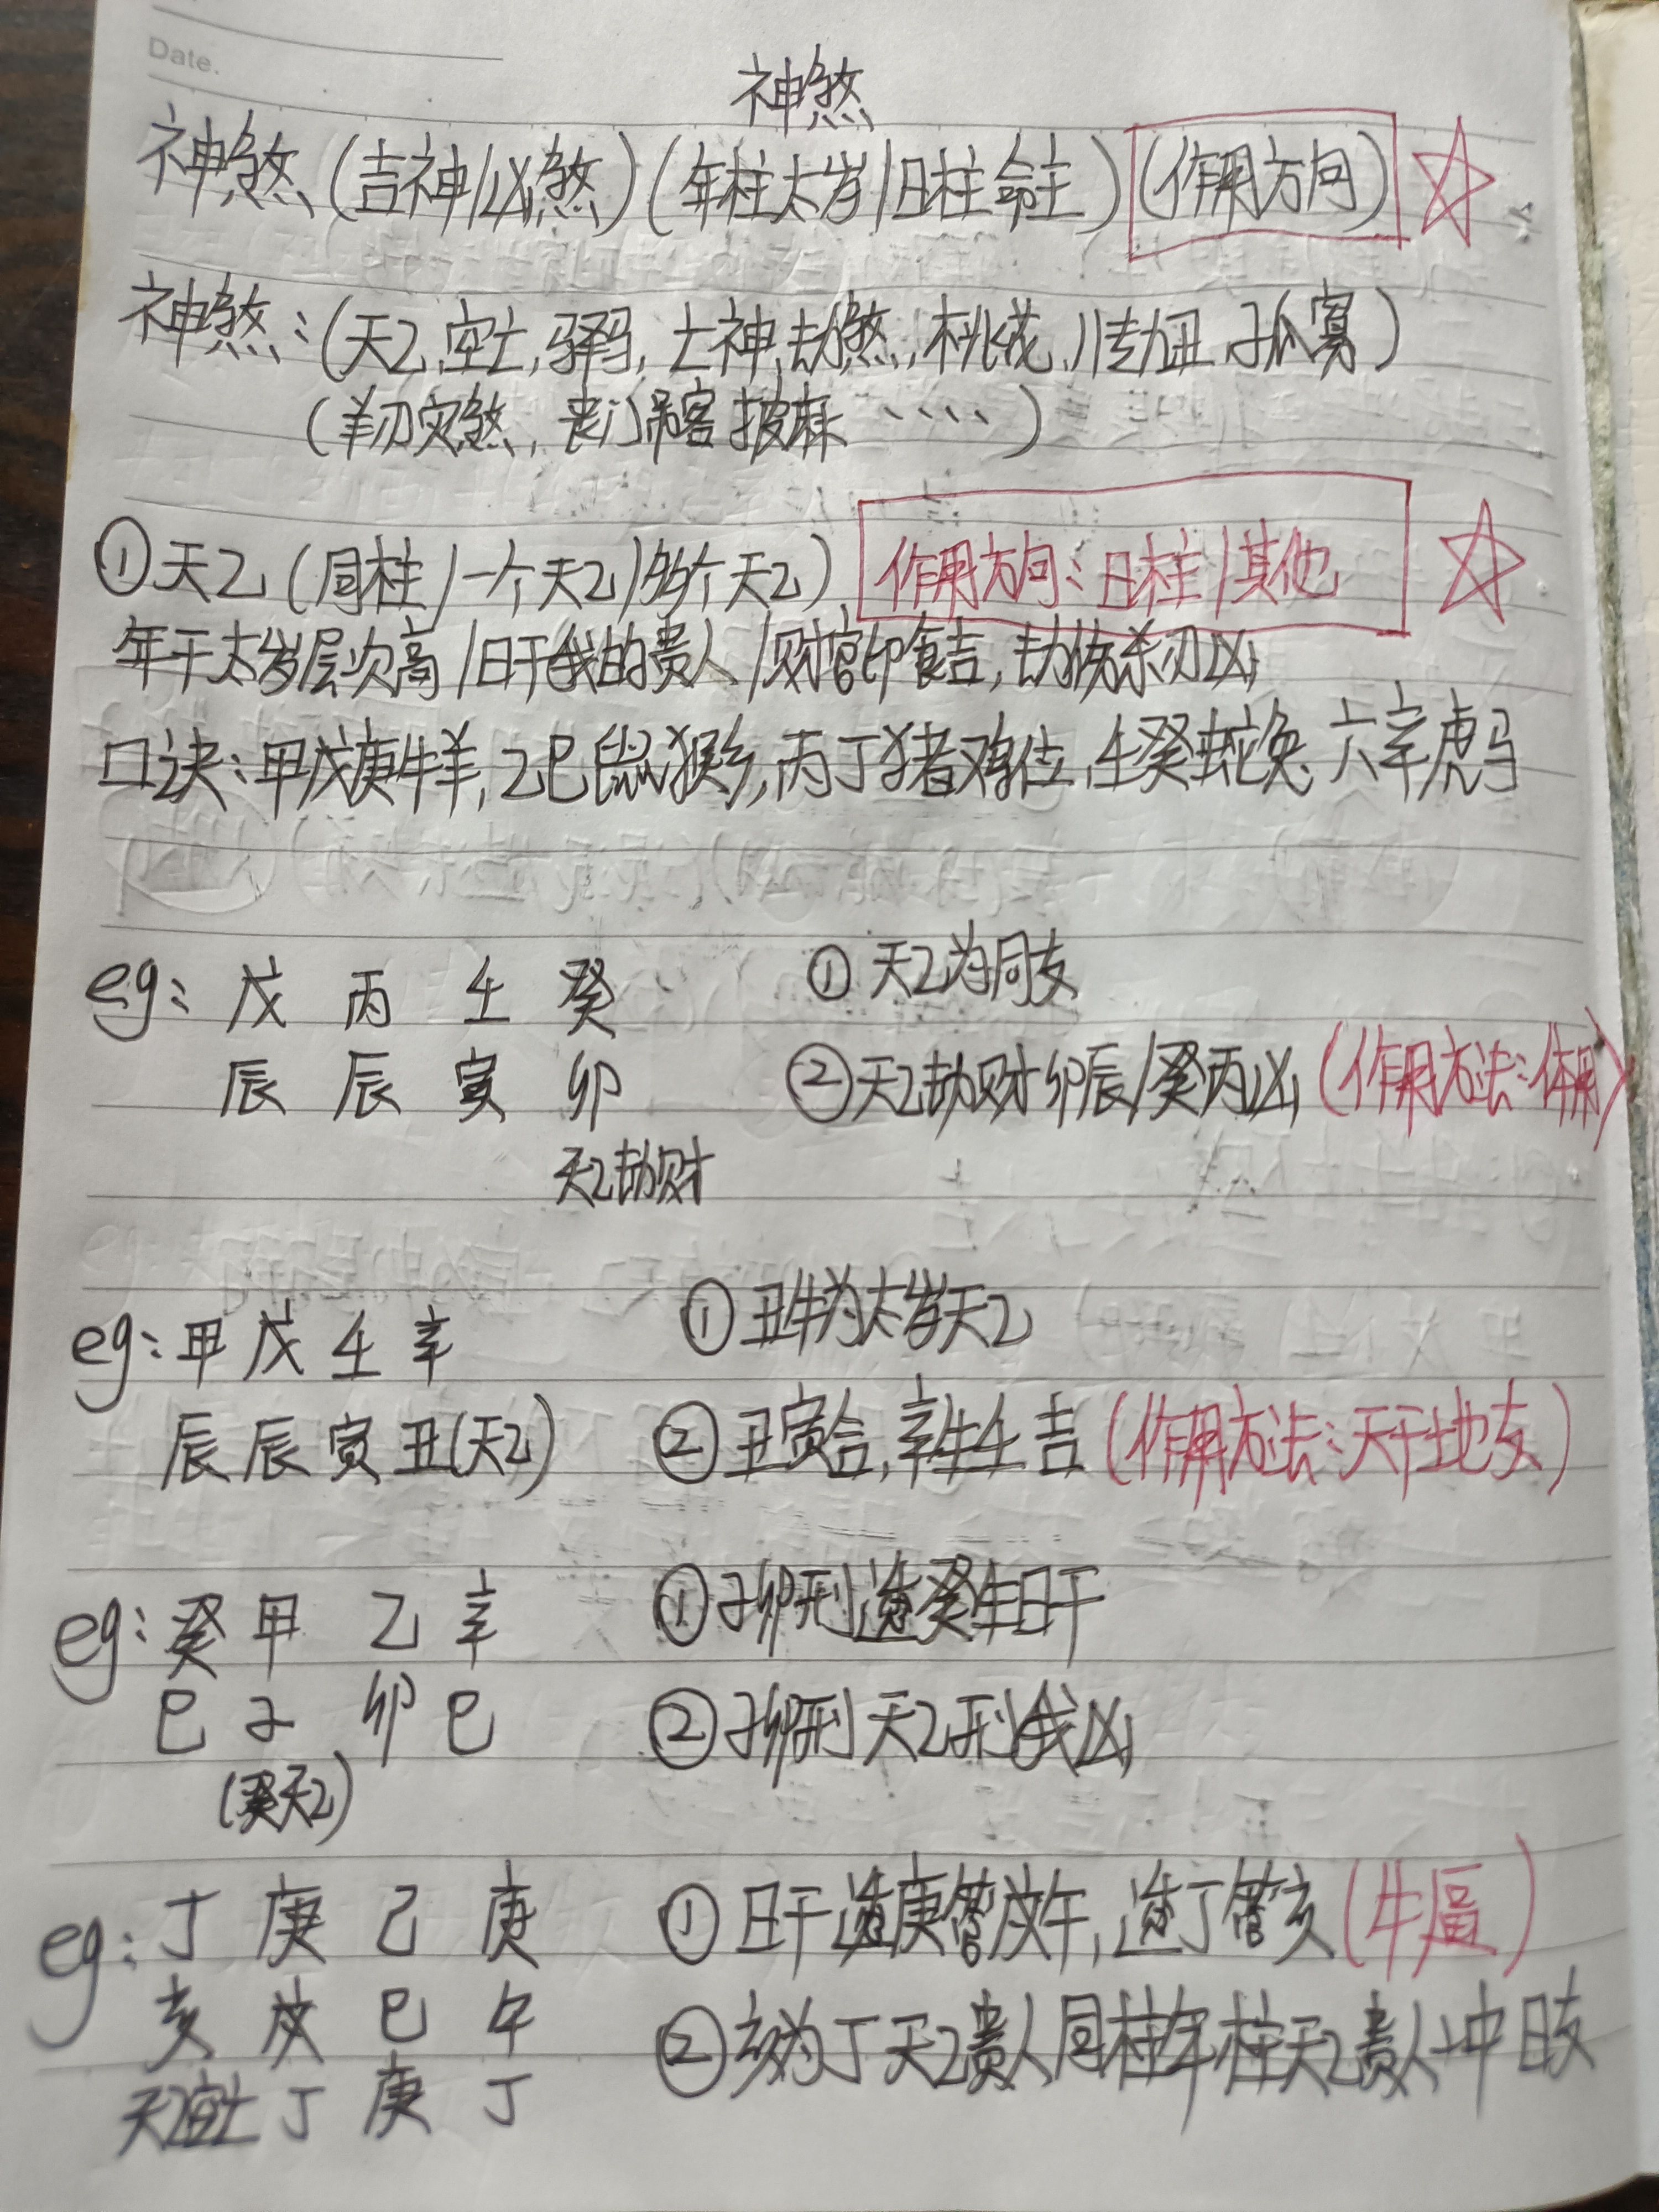 Date.
神煞
神煞(吉神/凶煞)(年柱太岁/日柱命主)(作用方向)
神煞:(天乙,空亡,驿马,亡神,劫煞,桃花,川劫丑,孤寡)
(羊刃灾煞,丧门吊客披麻、、、、)
①天乙(同柱/一个天乙/多个天乙) 作用方向:日柱/其他
年干太岁层次高/日干我的贵人/财官印食吉,劫伤杀刃凶
口诀:甲戊庚牛羊,乙己鼠猴乡,丙丁猪鸡位,壬癸蛇兔 六辛虎马
eg: 戊 丙 壬 癸 ①天乙为同支
辰 辰 寅 卯 ②天乙劫财卯辰/癸丙凶(作用方法:体用)
天乙劫财
eg:甲戊壬辛 ①丑牛为太岁天乙
辰辰寅丑(天乙) ②丑寅合,辛生壬吉(作用方法:天干地支)
eg:癸甲 乙辛 ①子卯刑造癸年日干
巳子 卯巳 ②子卯刑天乙刑我凶
(癸天乙)
eg:丁 庚 己 庚 ①日干造庚管戌午,造丁管亥(牛逼)
亥 戌 巳 午 ②亥为丁天乙贵人同柱年柱天乙贵人冲日支
天乙空亡 丁 庚 丁